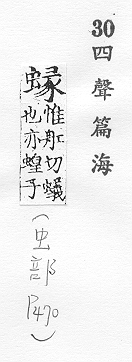 30四聲篇海
蝝惟船切蟻
也亦蝗子
(虫部 P470)